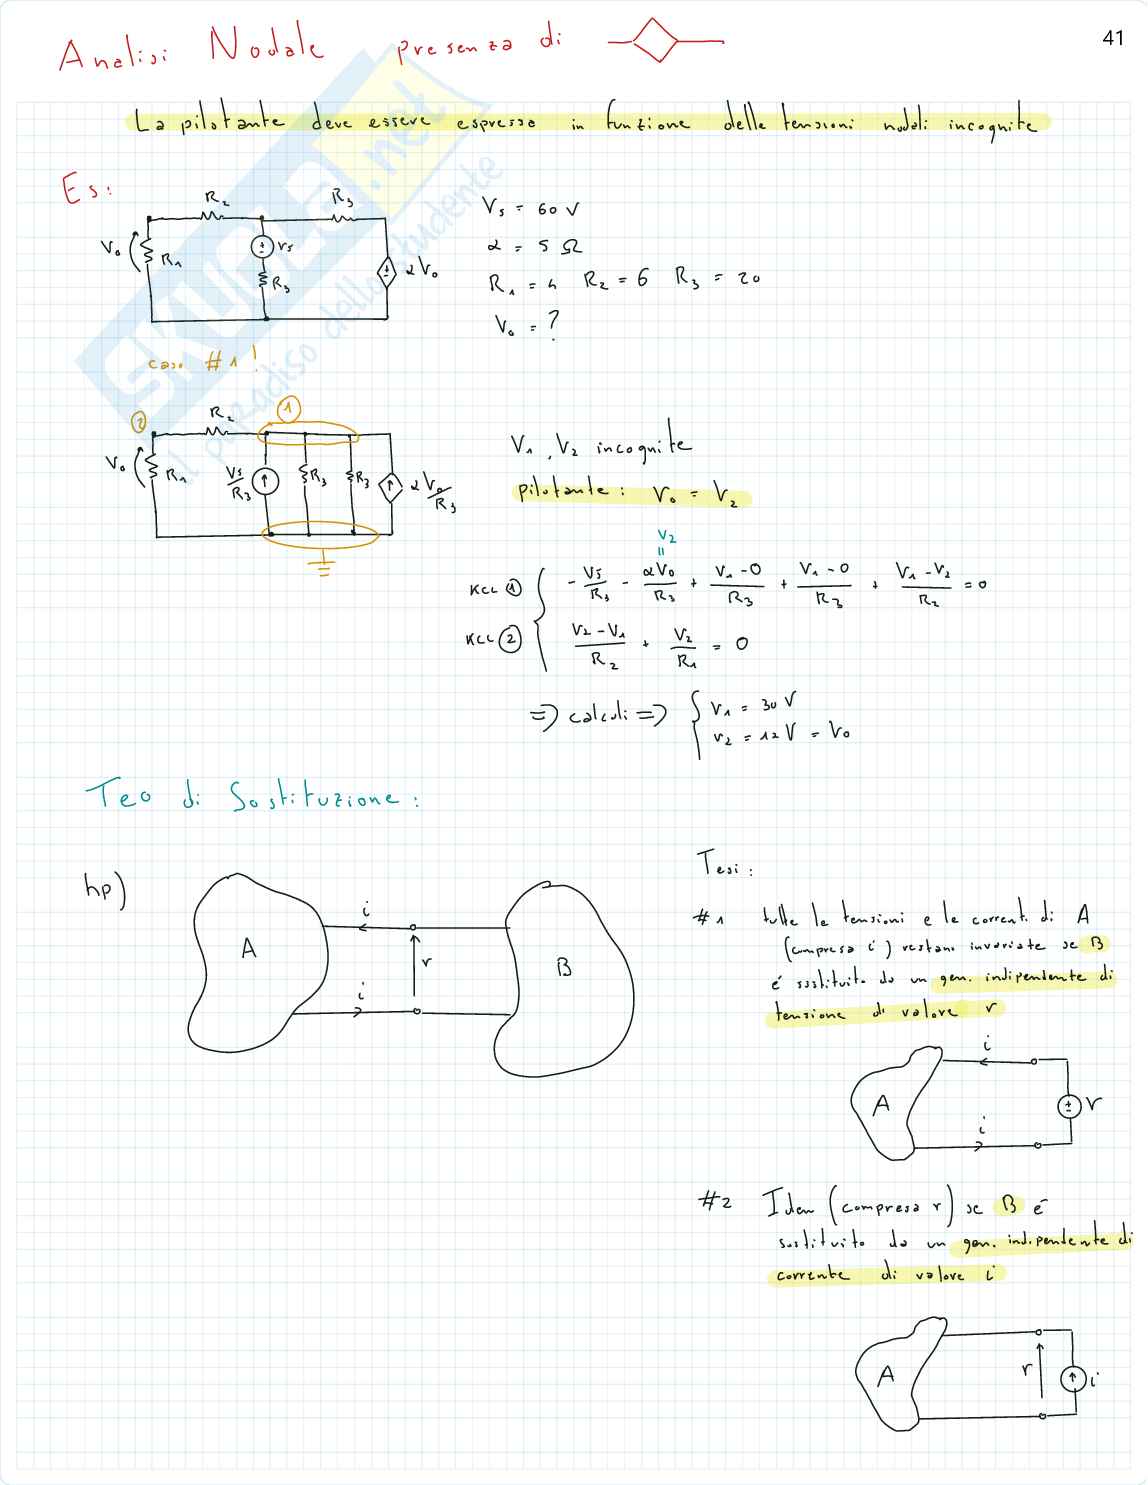 41
Analisi Nodale presenza di
La pilotante deve essere espressa in funzione delle tensioni nodali incognite
Es:
R₂ R₃
V₀ R₁ + Vs R₃ αV₀
Vs = 60 V
α = 5 Ω
R₁ = 4 R₂ = 6 R₃ = 20
V₀ = ?
caso #1!
② R₂ ①
V₀ R₁ Vs/R₃ R₃ R₃ αV₀/R₃
V₁, V₂ incognite
pilotante: V₀ = V₂
V₂
=
KCL ① { - Vs/R₃ - αV₀/R₃ + V₁-0/R₃ + V₁-0/R₃ + V₁-V₂/R₂ = 0
KCL ② V₂-V₁/R₂ + V₂/R₁ = 0
=> calcoli => { V₁ = 30 V
V₂ = 12 V = V₀
Teo di Sostituzione:
hp)
A i v i B
Tesi:
#1 tutte le tensioni e le correnti di A
(compresa i) restano invariate se B
é sostituito da un gen. indipendente di
tensione di valore v
A i i + v
#2 Idem (compresa v) se B é
sostituito da un gen. indipendente di
corrente di valore i
A v i
SKUOLA.net
il paradiso dello studente